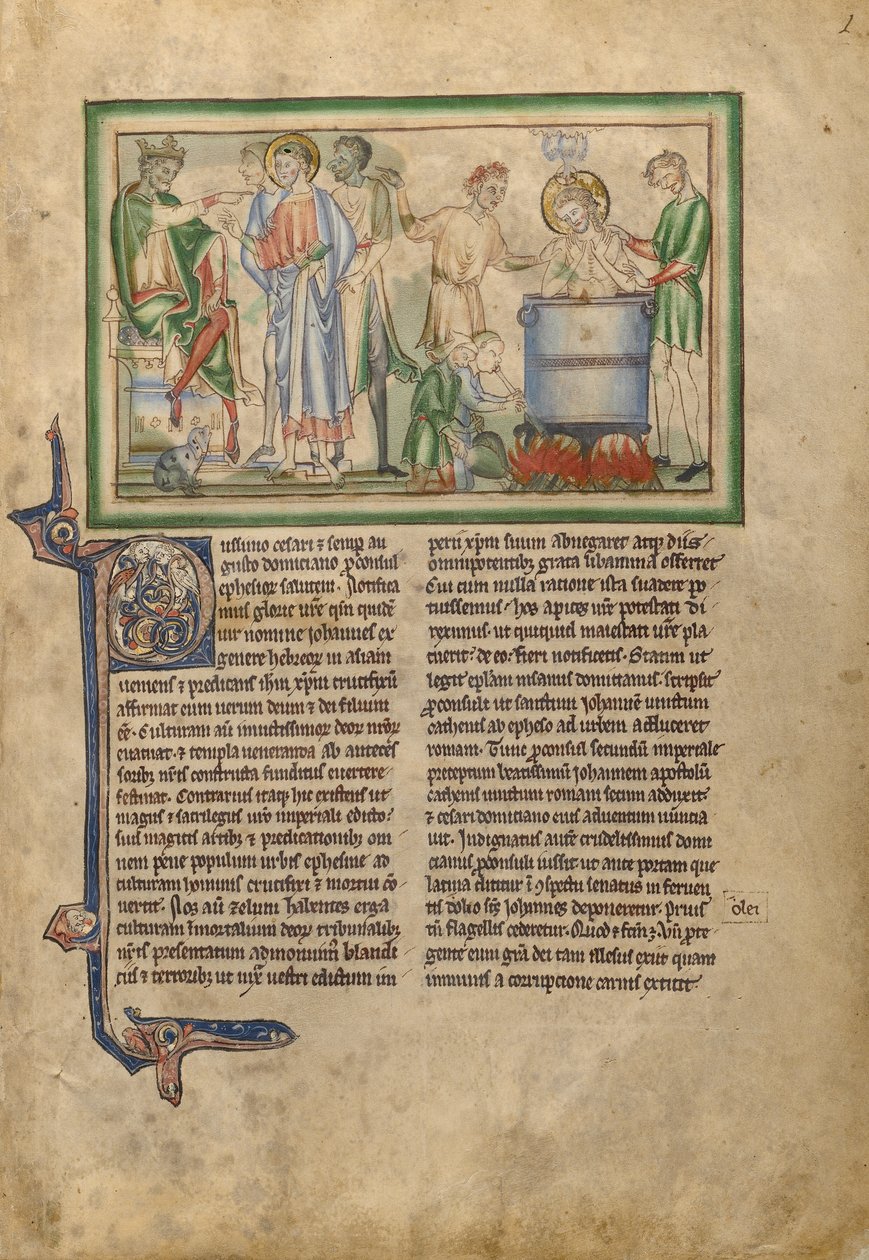 1
ussuno cesari ⁊ semp au
gusto domiciano ꝓconsul
ephesioꝝ salutem. Notifica
mus glorie vr̄e qm̄ quidē
uir nomine iohannes ex
genere hebreoꝝ in asiam
ueniens ⁊ predicans ihm̄ xp̄m crucifixū
affirmat eum uerum deum ⁊ dei filium
ēē. Culturam aū inuictissimoꝝ deoꝝ nr̄oꝝ
euacuat. ⁊ templa ueneranda ab anteces
soribꝫ nr̄is constructa funditus euertere
festinat. Contrarius itaqꝫ hic existens ut
magus ⁊ sacrilegus ur̄o imperiali edicto:
suis magicis artibꝫ ⁊ predicationibꝫ om
nem pene populum urbis ephesine ad
culturam hominis crucifixi ⁊ mortui cō
uertit. Nos aū zelum habentes erga
culturam īmortalium deoꝝ tribunalibꝫ
nr̄is presentatum admonuim̄ blandi
ciis ⁊ terroribꝫ ut iux̄ uestri edictum im
perii xp̄m suum abnegaret atqꝫ diis
omnipotentibꝫ grata libamina offerret
Cui cum nulla ratione ista suadere po
tuissemus. hos apices vr̄e potestati di
reximus. ut quicquid maiestati ur̄e pla
cuerit: de eo: fieri notificetis. Statim ut
legit ep̄lam insanus domicianus. scripsit
ꝓconsuli ut sanctum iohannē uinctum
cathenis ab epheso ad urbem adduceret
romam. Tunc ꝓconsul secundū imperiale
preceptum beatissimū iohannem apostolū
cathenis uinctum romam secum adduxit.
⁊ cesari domiciano eius aduentum nuncia
uit. Indignatus autē crudelissimus domi
cianus ꝓconsuli iussit ut ante portam que
latina dicitur ī ꝯspectu senatus in feruen
tis dolio sc̄s Iohannes deponeretur. prius
olei
tn̄ flagellis cederetur. Quod ⁊ fc̄m ē. Sꝫ ꝓte
gente eum gr̄a dei tam illesus exiit quam
inmunis a corrupcione carnis extitit.